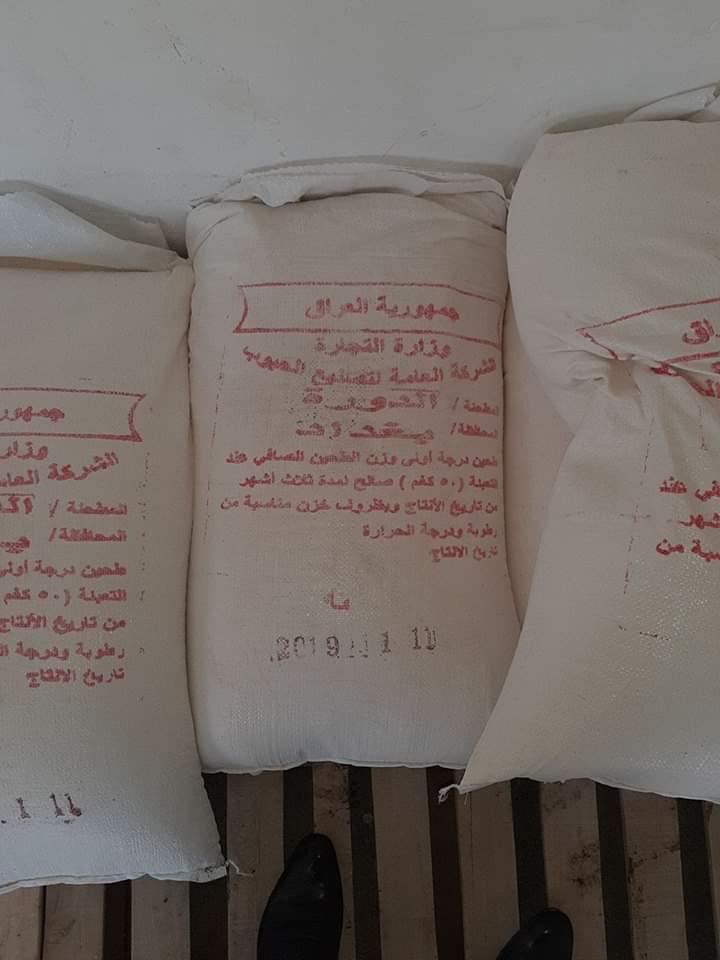 جمهورية العراق
وزارة التجارة
الشركة العامة لتصنيع الحبوب
المطحنة / الدورة
المحافظة / بغداد
طحين درجة أولى وزن الطحين الصافي عند
التعبئة (٥٠ كغم) صالح لمدة ثلاث أشهر
من تاريخ الأنتاج وبظروف خزن مناسبة من
رطوبة ودرجة الحرارة
تاريخ الانتاج
2019 11 1
جمهور
وزار
الشركة العا
المطحنة /
المحافظة /
طحين درجة أولى
التعبئة (٥٠ كغم
من تاريخ الأنتاج
رطوبة ودرجة ال
تاريخ الانتاج
1 11
راق
في عند
شهر
سبة من